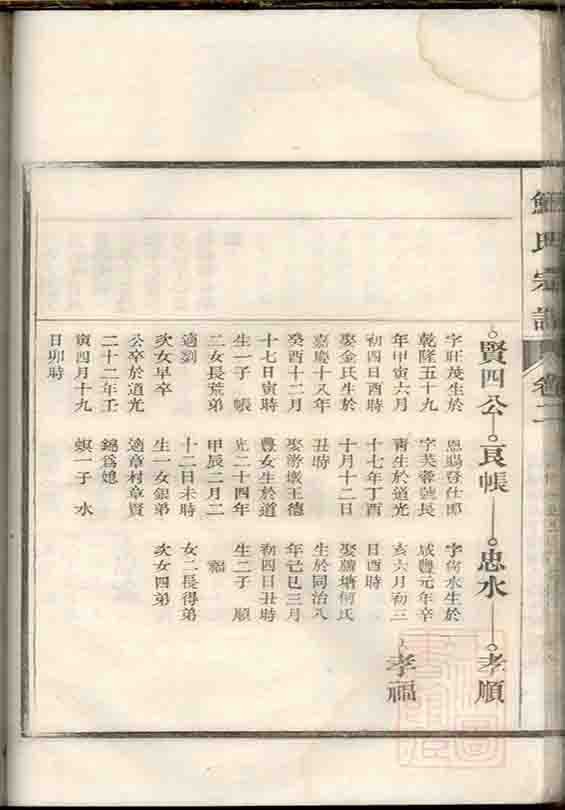 氏宗譜 卷二
賢四公 良帳 忠水 孝順
孝福
字旺茂生於
乾隆五十九
年甲寅六月
初四日酉時
娶金氏生於
嘉慶十八年
癸酉十二月
十七日寅時
生一子 帳
二女長荒弟
適劉
次女早卒
公卒於道光
二十二年壬
寅四月十九
日卯時
恩賜登仕郎
字芙蓉號長
靑生於道光
十七年丁酉
十月十二日
丑時
娶游墩王德
豐女生於道
光二十四年
甲辰二月二
十二日未時
生一女銀弟
適章村章賢
錦爲媳
螟一子 水
字荷水生於
咸豐元年辛
亥六月初三
日酉時
娶塘何氏
生於同治八
年己巳三月
初四日丑時
生二子 順
福
女二長得弟
次女四弟